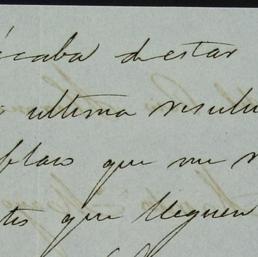 acaba destar
ultima resolu
plazo que me
tes que lleguen